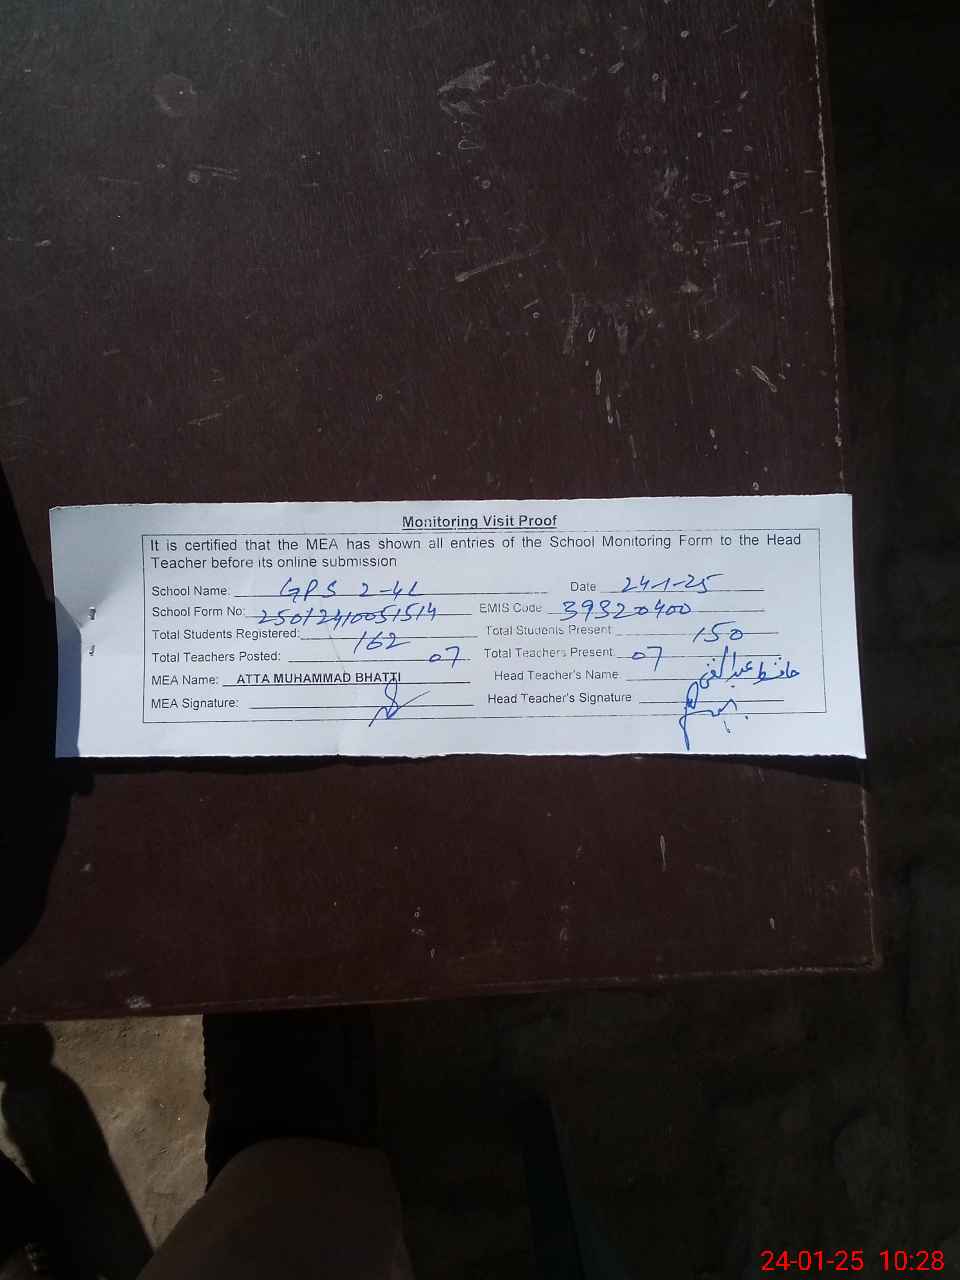 Monitoring Visit Proof
It is certified that the MEA has shown all entries of the School Monitoring Form to the Head
Teacher before its online submission
School Name: GPS 2-4L Date 24-1-25
School Form No: 25012410051514 EMIS Code 39320400
Total Students Registered: 162 Total Students Present 150
Total Teachers Posted: 07 Total Teachers Present 07
MEA Name: ATTA MUHAMMAD BHATTI Head Teacher's Name حافظ عبدالغنی
MEA Signature: Head Teacher's Signature
24-01-25 10:28